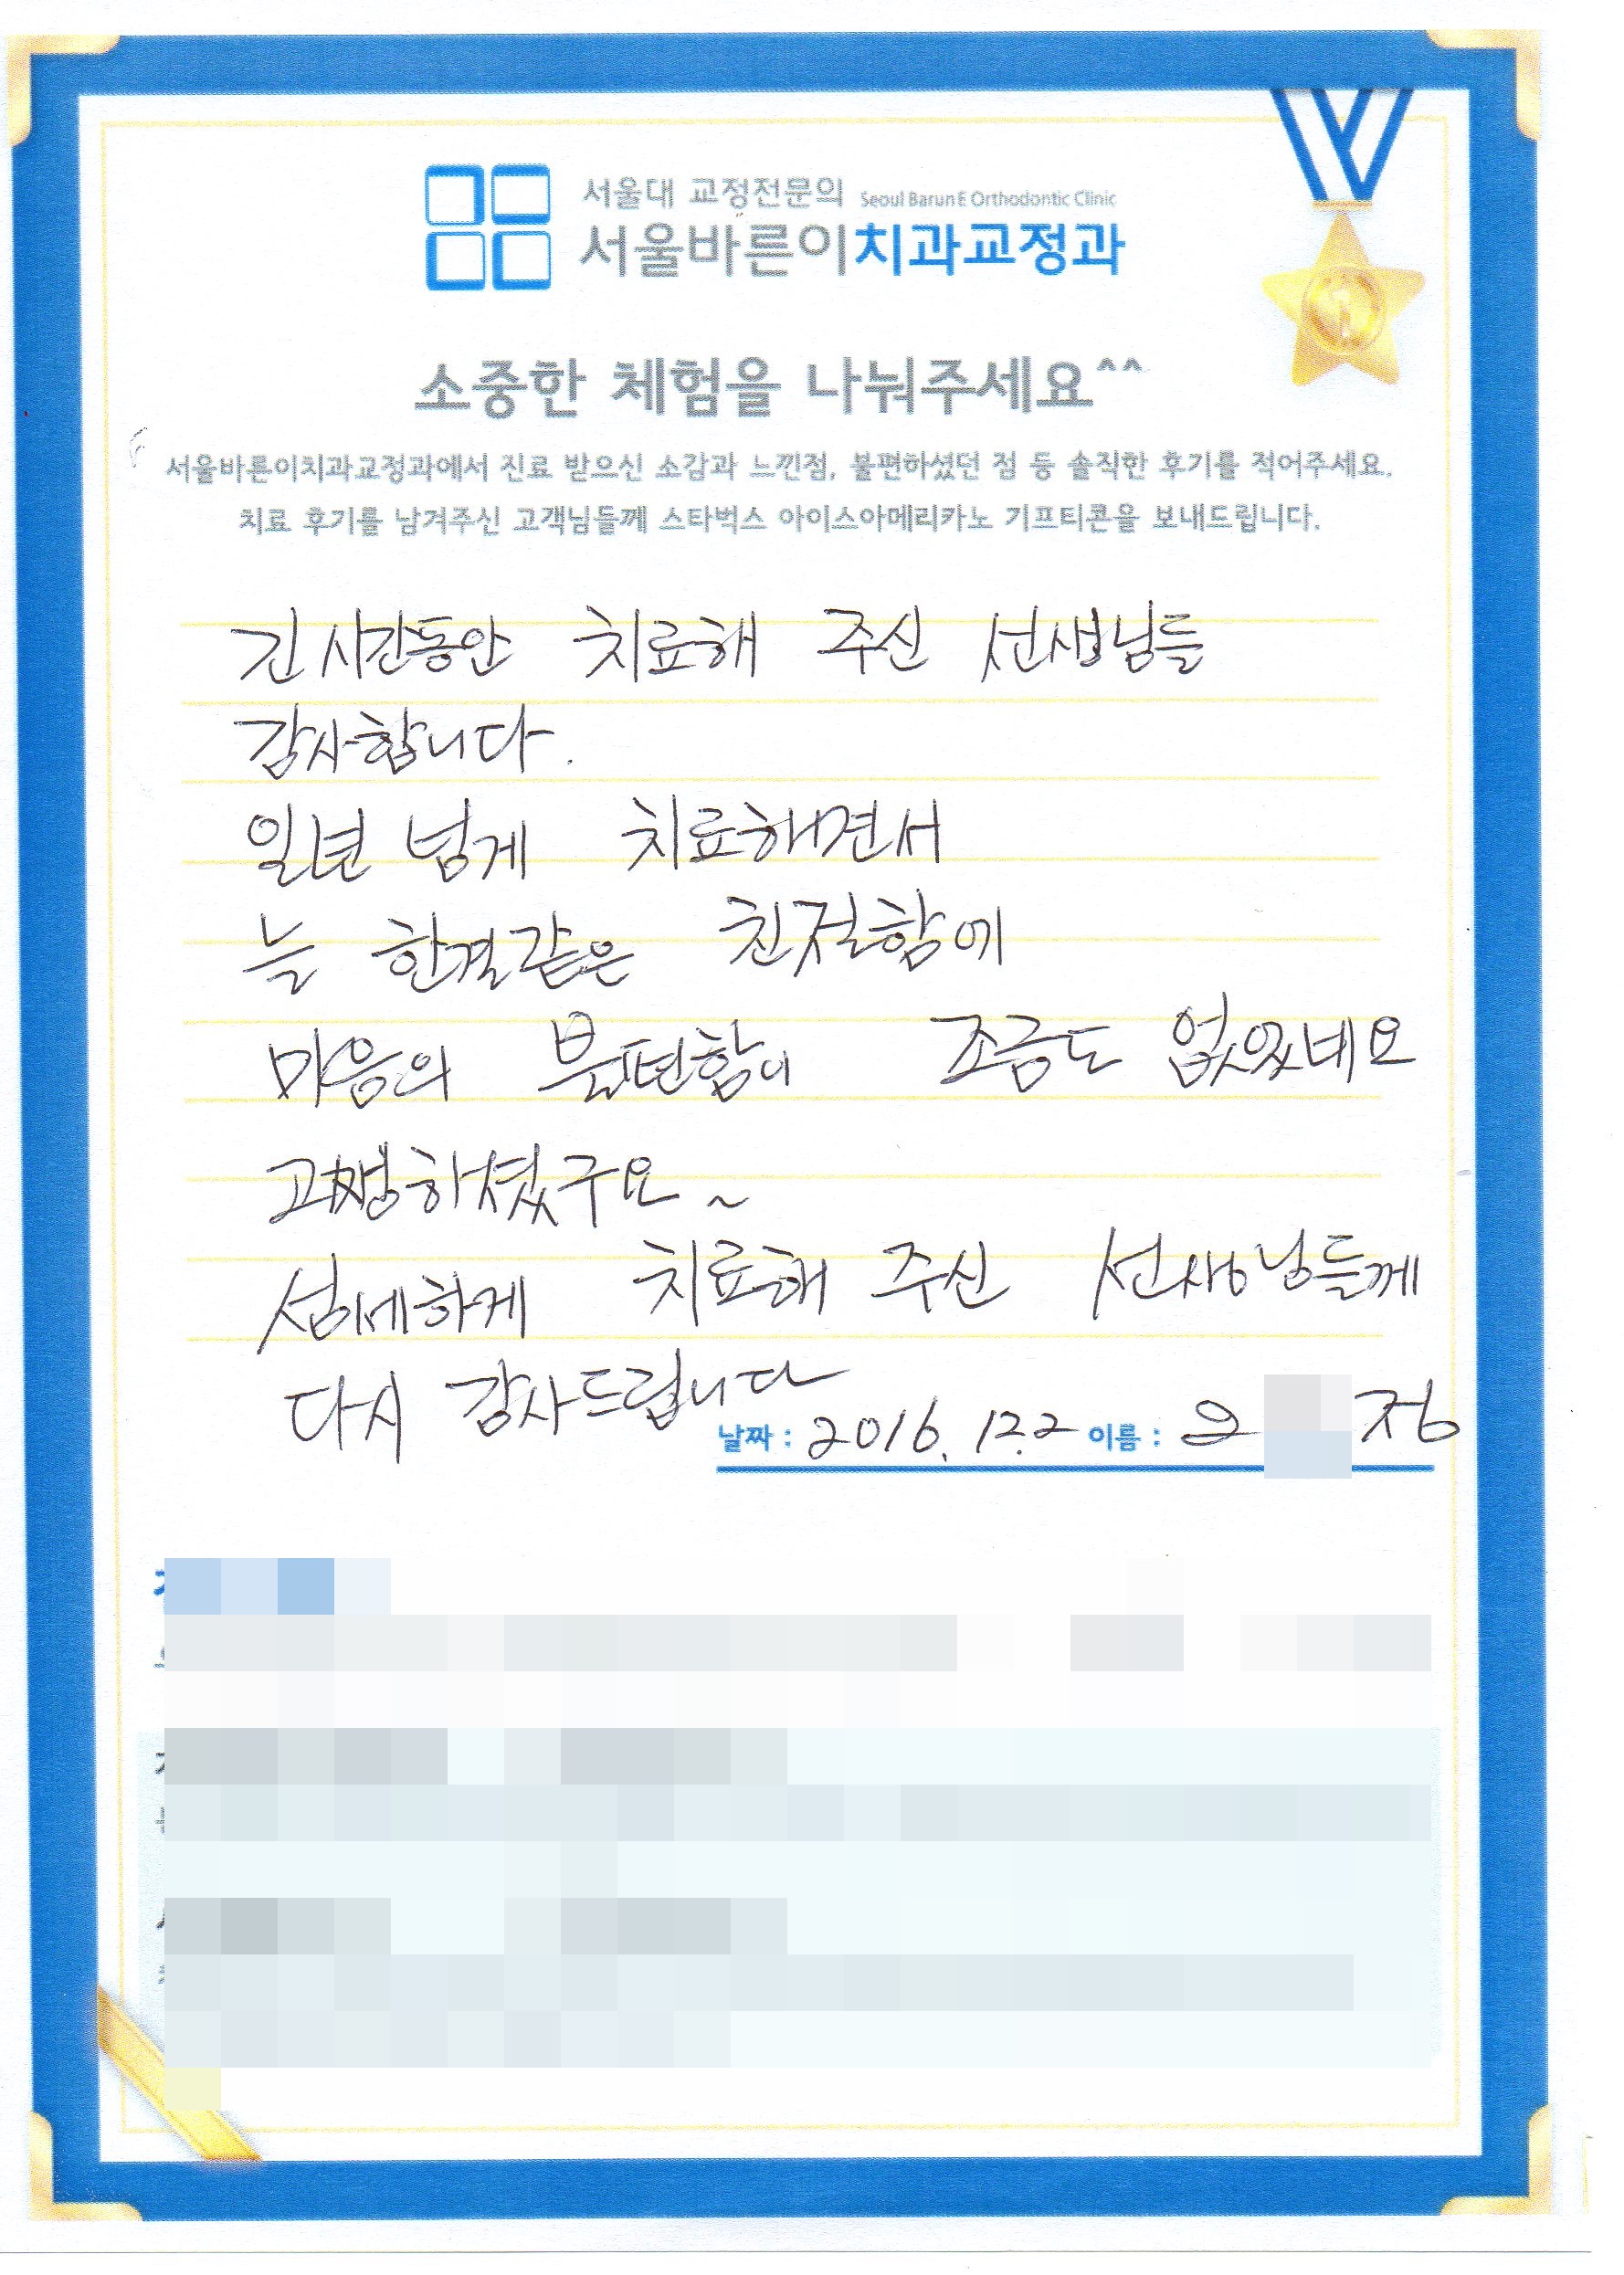 서울대 교정전문의 Seoul BarunE Orthodontic Clinic
서울바른이치과교정과
소중한 체험을 나눠주세요^^
서울바른이치과교정과에서 진료 받으신 소감과 느낀점, 불편하셨던 점 등 솔직한 후기를 적어주세요.
치료 후기를 남겨주신 고객님들께 스타벅스 아이스아메리카노 기프티콘을 보내드립니다.
긴 시간동안 치료해 주신 선생님들
감사합니다.
일년 넘게 치료해면서
늘 한결같은 친절함에
마음의 불편함이 조금도 없었네요
고생하셨구요~
섬세하게 치료해 주신 선생님들께
다시 감사드립니다
날짜 : 2016.12.2 이름 : 정